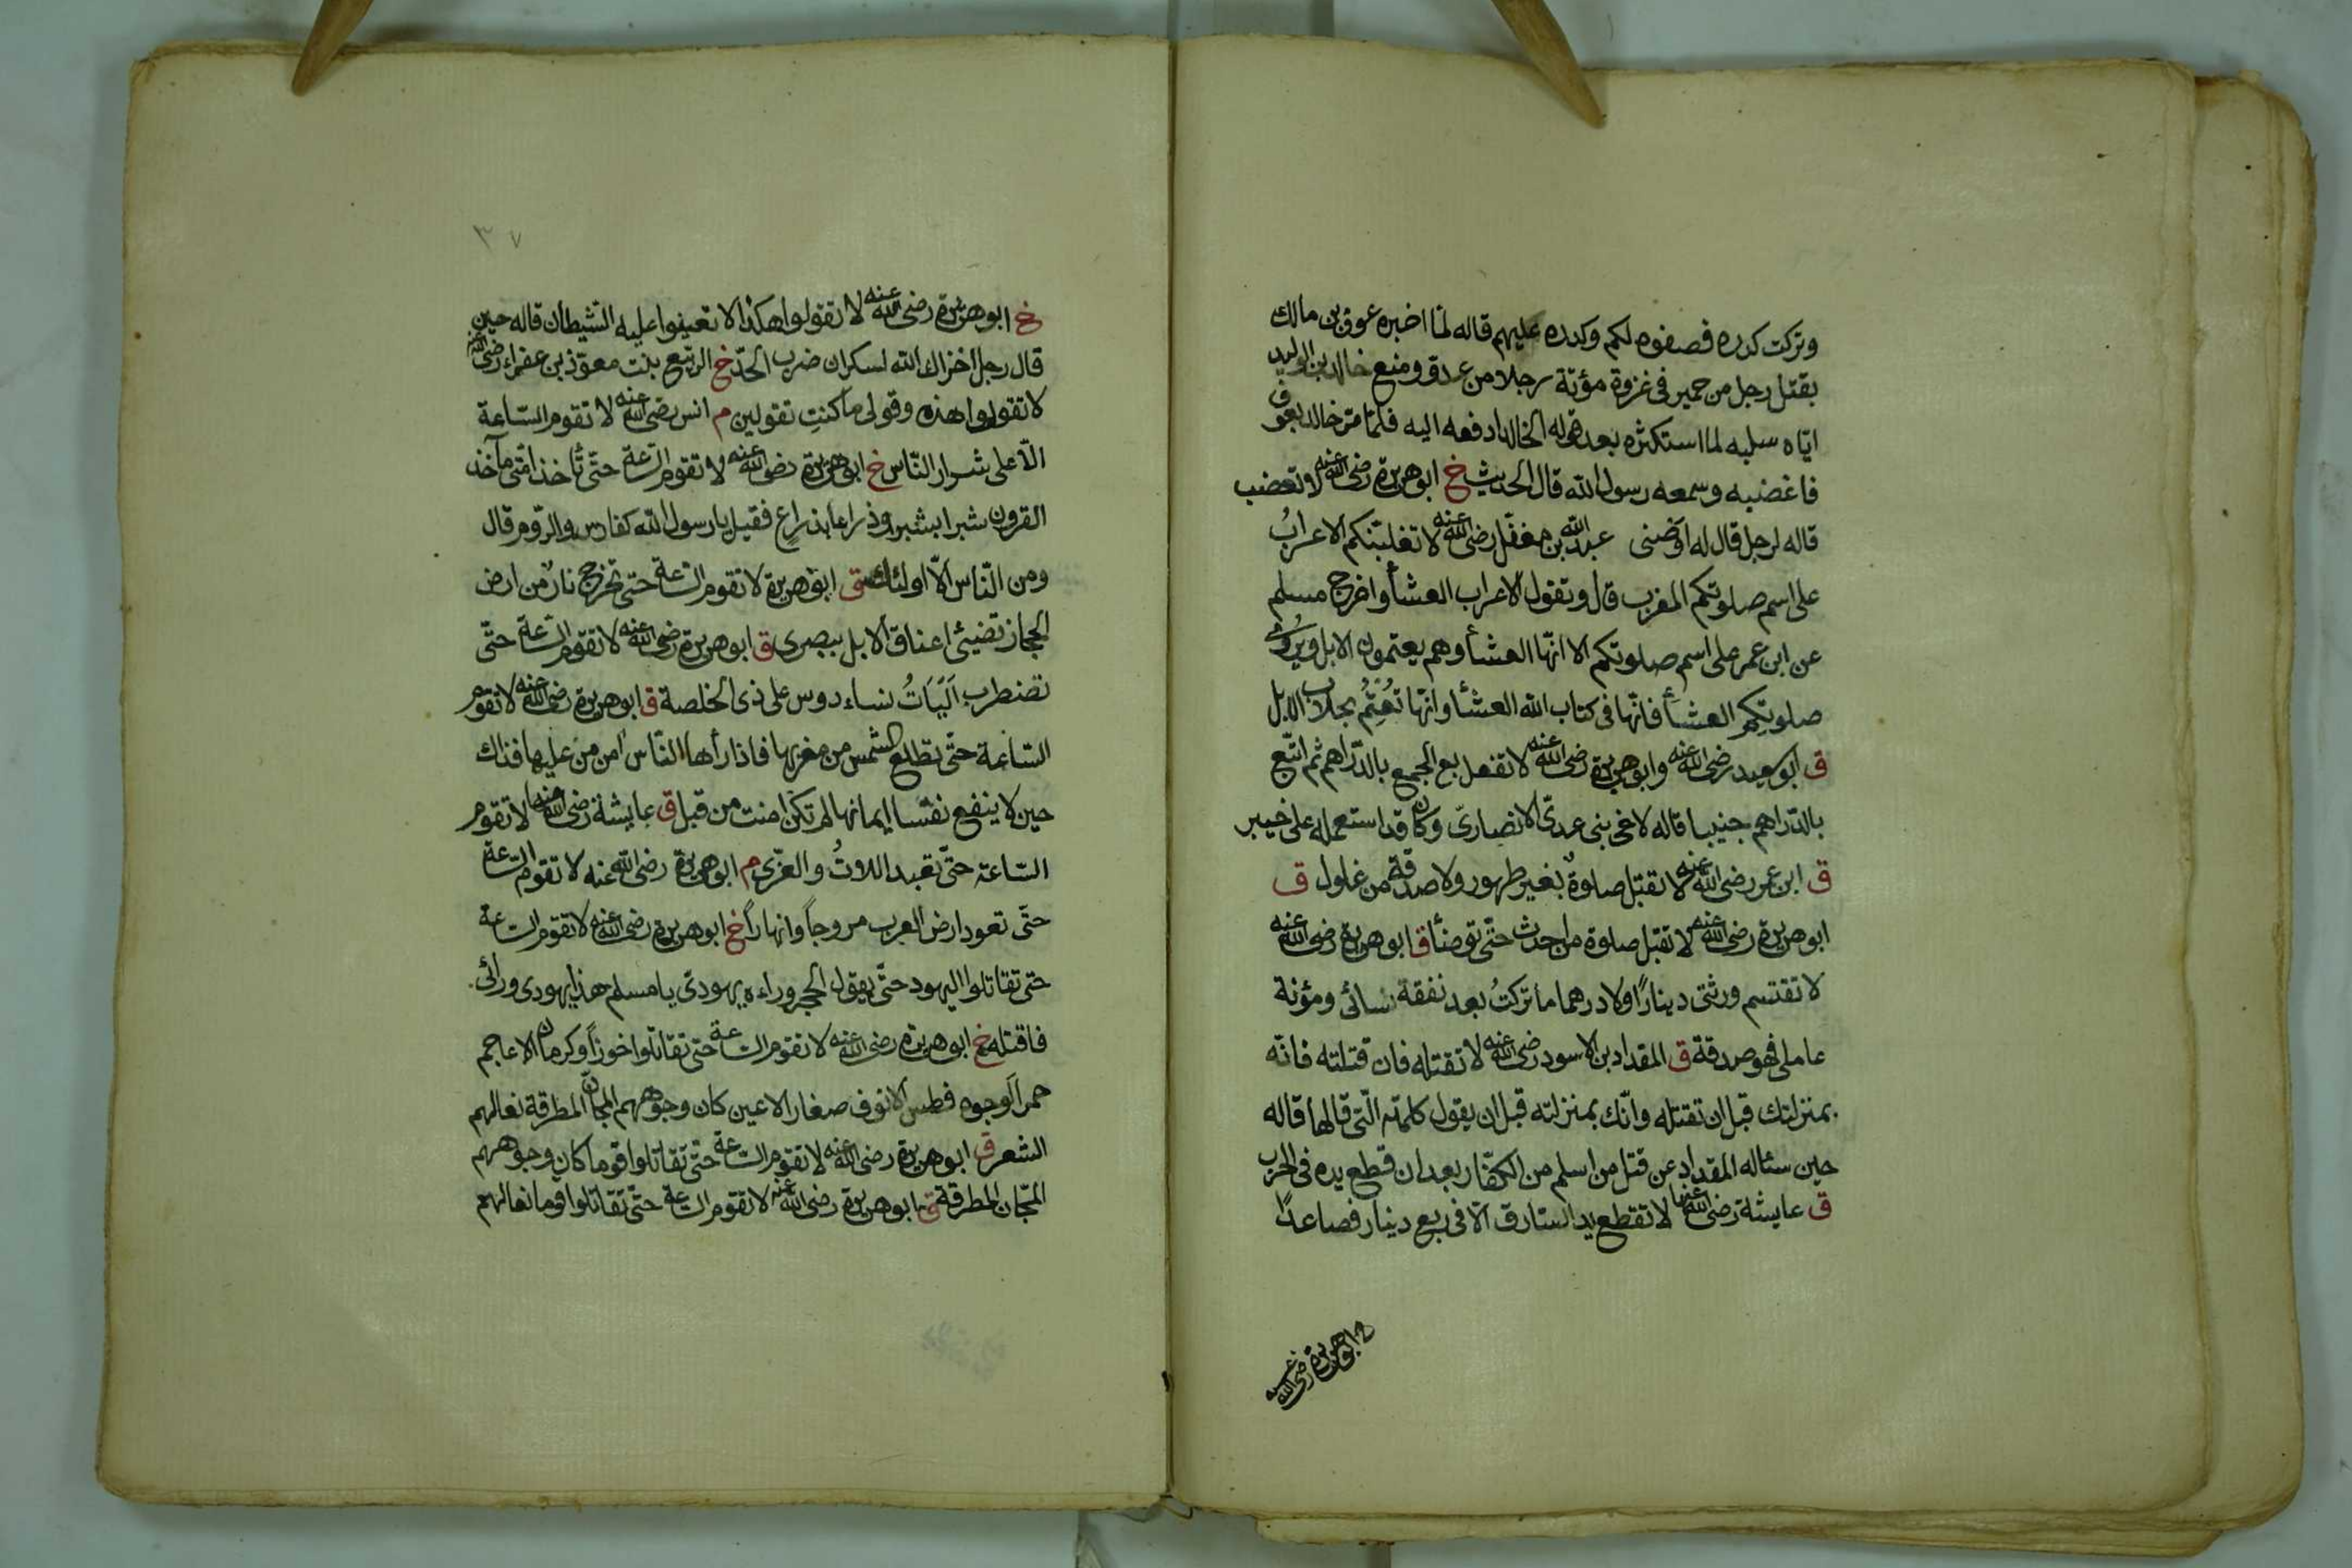 وتركت كدره فصفوه لكم وكدره عليهم قاله لما اخبره عوف بن مالك
بقتل رجل من حمير فى غزوة مؤتة رجلا من عدو ومنع خالد بن الوليد
ايّاه سلبه لما استكثره بعد قوله لخالد ادفعه اليه فلمّا مرّ خالد بعوف
فاغضبه وسمعه رسول الله قال الحديث خ ابو هريرة رضى الله عنه لا تغضب
قاله لرجل قال له اوصنى عبد الله بن مغفّل رضى الله عنه لا تغلبنّكم الاعرابُ
على اسم صلوتكم المغرب قال وتقول الاعراب العشاء واخرج مسلم
عن ابن عمر على اسم صلوتكم الا انّها العشاء وهم يعتمون الابل
صلوتكم العشاء فانّها فى كتاب الله العشاء وانّها تُعْتِمُ بحلاب الابل
ق ابو سعيد رضى الله عنه وابو هريرة رضى الله عنه لا تفعل بع الجمع بالدّراهم ثم اتبع
بالدّراهم جنيبا قاله لاخى بنى عدىّ الانصارىّ وكان قد استعمله على خيبر
ق ابن عمر رضى الله عنه لا تقبل صلوةٌ بغير طهور ولا صدقة من غلول ق
ابو هريرة رضى الله عنه لا تقبل صلوة من احدث حتّى توضأ ق ابو هريرة رضى الله عنه
لا تقتسم ورثتى دينارًا ولا درهما ما تركتُ بعد نفقة نسائى ومؤنة
عاملى فهو صدقة ق المقداد بن الاسود رضى الله عنه لا تقتله فان قتلته فانّه
بمنزلتك قبل ان تقتله وانّك بمنزلته قبل ان يقول كلمته الّتى قالها قاله
حين سئاله المقداد عن قتل من اسلم من الكفّار بعد ان قطع يده فى الحرب
ق عايشة رضى الله عنها لا تقطع يد السّارق الّا فى ربع دينار فصاعدًا
خ ابو هريرة رضى الله عنه
٣٧
خ ابو هريرة رضى الله عنه لا تقولوا هكذا لا تعينوا عليه الشيطان قاله حين
قال رجل اخزاك الله لسكران ضرب الحدّ خ الربيّع بنت معوّذ بن عفراء رضى الله
لا تقولوا هذه وقولى ما كنتِ تقولين م انس رضى الله عنه لا تقوم السّاعة
الّا على شرار النّاس خ ابو هريرة رضى الله عنه لا تقوم السّاعة حتّى تأخذ امّتى مآخذ
القرون شبرا بشبر وذراعا بذراعٍ فقيل يا رسول الله كفارس والرّوم قال
ومن النّاس الّا اولئك ق ابو هريرة لا تقوم السّاعة حتى تخرج نارٌ من ارض
الحجاز تضيئ اعناق الابل ببصرى ق ابو هريرة رضى الله عنه لا تقوم السّاعة حتّى
تضطرب اَلَيَاتُ نساء دوس على ذى الخلصة ق ابو هريرة رضى الله عنه لا تقوم
السّاعة حتّى تطلع الشمس من مغربها فاذا رأها النّاس امن من عليها فذاك
حين لا ينفع نفسا ايمانها لم تكن امنت من قبل ق عايشة رضى الله عنها لا تقوم
السّاعة حتّى تعبد اللاتُ والعزّى م ابو هريرة رضى الله عنه لا تقوم السّاعة
حتّى تعود ارض العرب مروجاً وانهاراً خ ابو هريرة رضى الله عنه لا تقوم السّاعة
حتى تقاتلوا اليهود حتّى يقول الحجر وراءه يهودىّ يا مسلم هذا يهودى ورائى
فاقتله خ ابو هريرة رضى الله عنه لا تقوم السّاعة حتى تقاتلوا خوزاً وكرمان الاعاجم
حمر الوجوه فطس الانوف صغار الاعين كان وجوههم المجانّ المطرقة نعالهم
الشعر ق ابو هريرة رضى الله عنه لا تقوم السّاعة حتّى تقاتلوا قوما كان وجوههم
المجّان المطرقة ق ابو هريرة رضى الله عنه لا تقوم السّاعة حتّى تقاتلوا قوما نعالهم